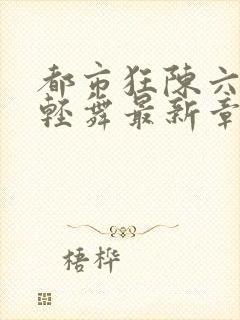 都市狂陈六
轻舞最新章
梧桦